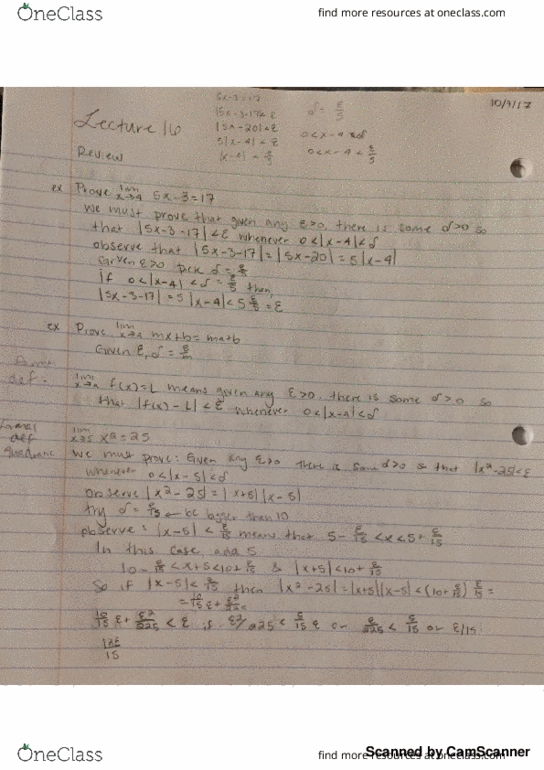 OneClass
find more resources at oneclass.com
5x-3=17
|5x-3-17|<ε
|5x-20|<ε
5|x-4|<ε
|x-4|<ε/5
δ=ε/5
0<x-4<δ
0<x-4<ε/5
10/9/17
Lecture 16
Review
ex Prove lim x→4 5x-3=17
We must prove that given any ε>0, there is some δ>0 so
that |5x-3-17|<ε whenever 0<|x-4|<δ
observe that |5x-3-17|=|5x-20|=5|x-4|
Given ε>0 pick δ=ε/5
if 0<|x-4|<δ=ε/5 then,
|5x-3-17|=5|x-4|<5 ε/5=ε
ex Prove lim x→a mx+b=ma+b
Given ε, δ=ε/m
def:
lim x→a f(x)=L means given any ε>0, there is some δ>0 so
that |f(x)-L|<ε whenever 0<|x-a|<δ
def
quadratic
lim x→5 x²=25
We must prove: Given any ε>0 there is some δ>0 so that |x²-25|<ε
whenever 0<|x-5|<δ
observe |x²-25|=|x+5||x-5|
try δ=ε/15 ← bc bigger than 10
observe: |x-5|<ε/15 means that 5-ε/15<x<5+ε/15
In this case, add 5
10-ε/15<x+5<10+ε/15 & |x+5|<10+ε/15
So if |x-5|<ε/15 then |x²-25|=|x+5||x-5|<(10+ε/15) ε/15=
=10/15 ε+ε²/225
10/15 ε+ε²/225<ε if ε²/225<5/15 ε or ε/225<5/15 or ε/15
OneClass
find more resources at oneclass.com
Scanned by CamScanner